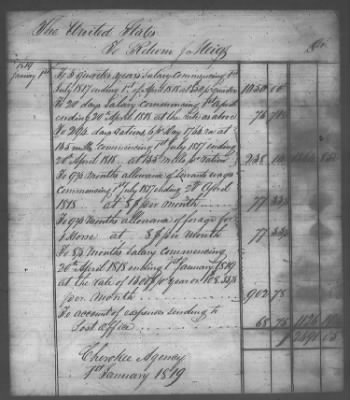 The United States
To Return J Meigs Dr.
1819
January 1st To 3 quarter years Salary Commencing 1st
July 1817 ending 1st of April 1818 at 350 pr quarter 1050 00
To 20 days Salary commencing 1st April
ending 20th April 1818 at the rate as above 76
To 293 days Rations 6 pr day
mills commencing 1st July 1817 ending
20th April 1818 at mills pr ration
To 9⅔ months allowance of servants wages
Commencing 1st July 1817 ending 20th April
1818 at 8$ per month 77 33
To 9⅔ months allowance of forage for
1 Horse at 8$ pr month 77 33
To 8⅓ months Salary commencing
20th April 1818 ending 1st January 1819
at the rate of 1300$ pr year or 108.33⅓
per month 902 78
To account of expenses sending to
Post office 68 75
Cherokee Agency
1st January 1819